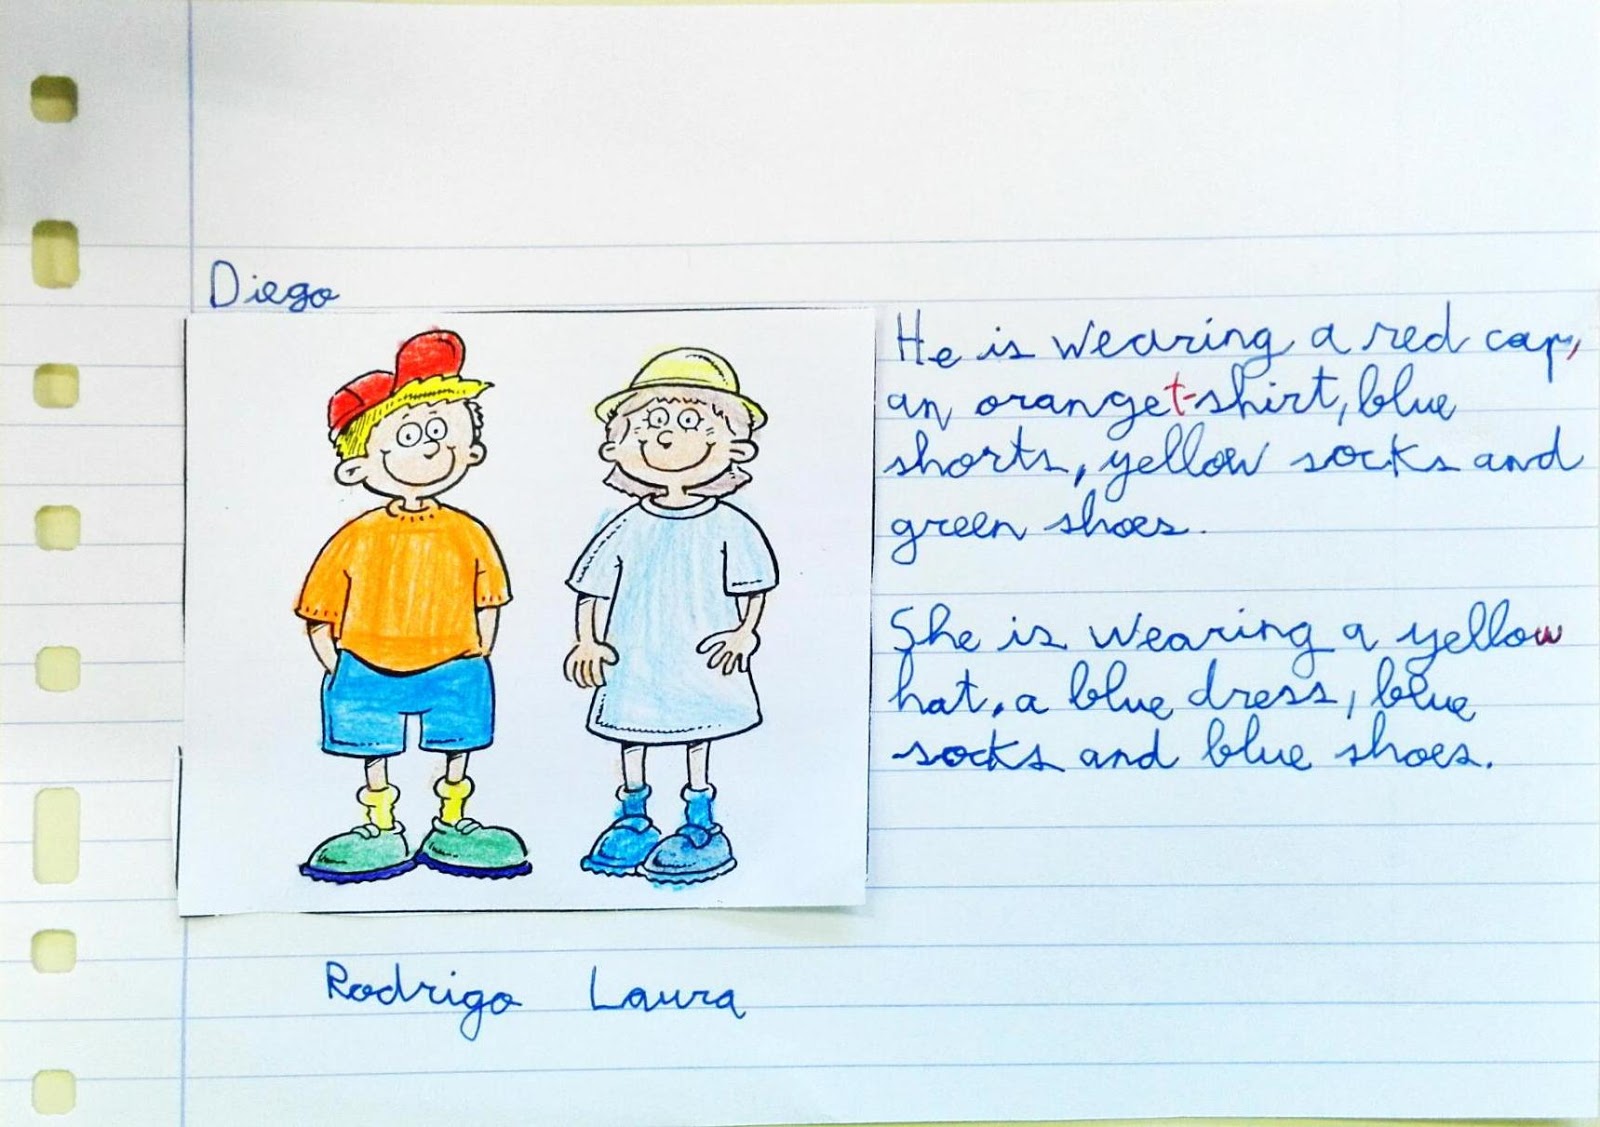 Diego
He is wearing a red cap,
an orange t-shirt, blue
shorts, yellow socks and
green shoes.
She is wearing a yellow
hat, a blue dress, blue
socks and blue shoes.
Rodrigo Laura